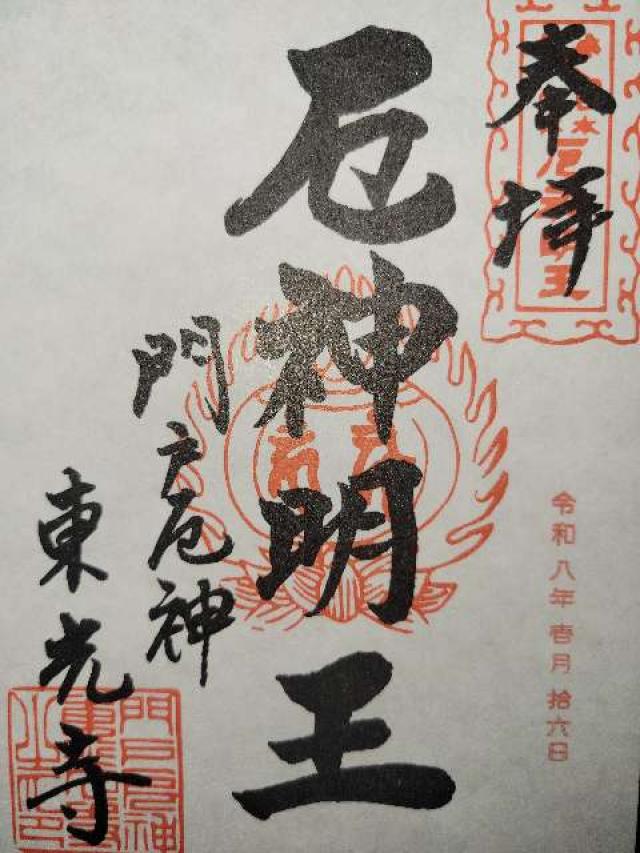 奉拝
厄神明王
門戸厄神
東光寺
令和八年壱月拾六日